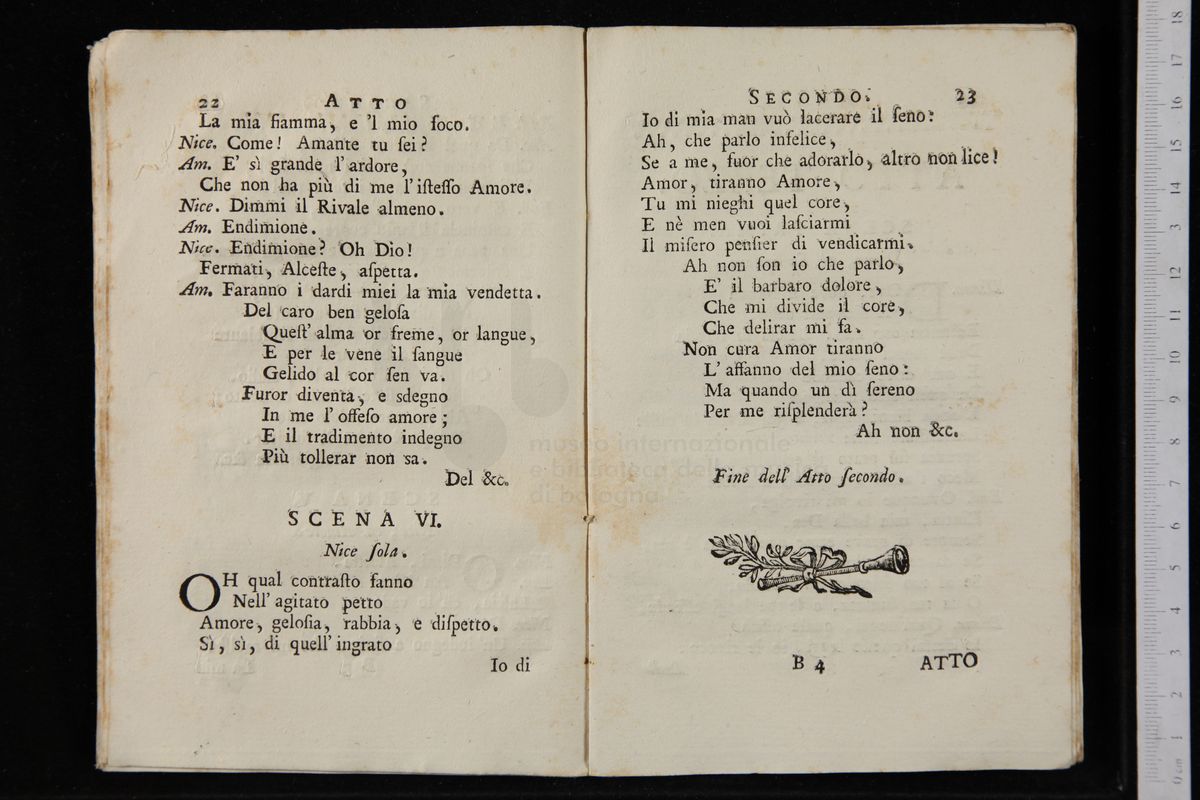 22 ATTO
La mia fiamma, e 'l mio foco.
Nice. Come! Amante tu ſei?
Am. E' sì grande l'ardore,
Che non ha più di me l'iſteſſo Amore.
Nice. Dimmi il Rivale almeno.
Am. Endimione.
Nice. Endimione? Oh Dio!
Fermati, Alceſte, aſpetta.
Am. Faranno i dardi miei la mia vendetta.
Del caro ben geloſa
Queſt' alma or freme, or langue,
E per le vene il ſangue
Gelido al cor ſen va.
Furor diventa, e sdegno
In me l'offeſo amore;
E il tradimento indegno
Più tollerar non sa.
Del &c.
SCENA VI.
Nice ſola.
OH qual contraſto fanno
Nell' agitato petto
Amore, geloſia, rabbia, e diſpetto.
Sì, sì, di quell' ingrato
Io di
SECONDO. 23
Io di mia man vuò lacerare il ſeno:
Ah, che parlo infelice,
Se a me, fuor che adorarlo, altro non lice!
Amor, tiranno Amore,
Tu mi nieghi quel core,
E nè men vuoi laſciarmi
Il miſero penſier di vendicarmi.
Ah non ſon io che parlo,
E' il barbaro dolore,
Che mi divide il core,
Che delirar mi fa.
Non cura Amor tiranno
L' affanno del mio ſeno:
Ma quando un dì ſereno
Per me riſplenderà?
Ah non &c.
Fine dell' Atto ſecondo.
B 4 ATTO
museo internazionale
e biblioteca della musica
di bologna
0 cm 1 2 3 4 5 6 7 8 9 10 11 12 13 14 15 16 17 18